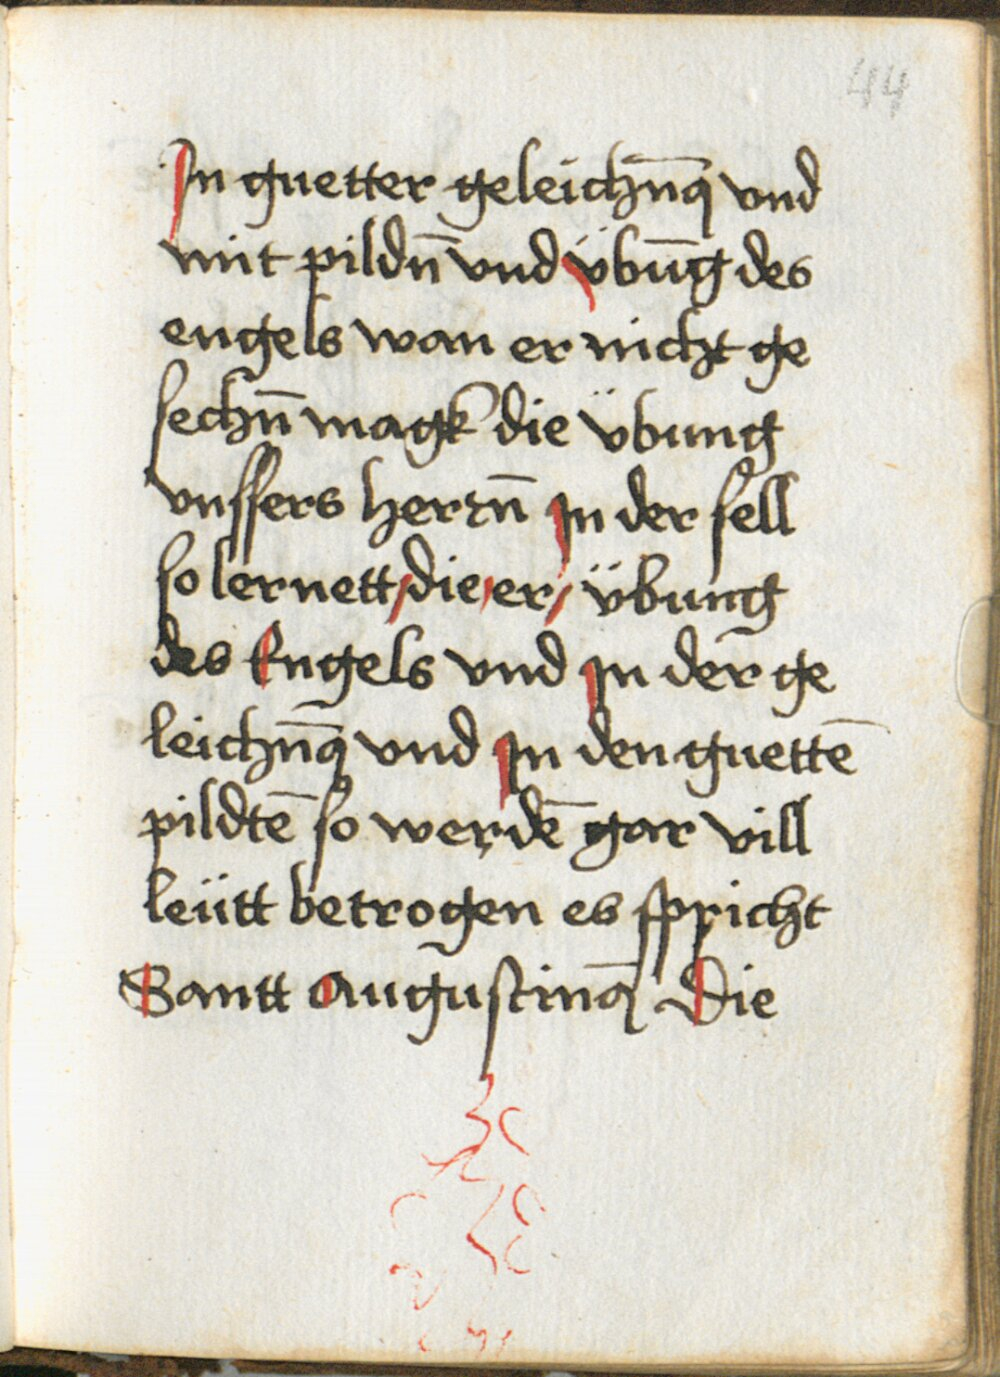 44
In guetter geleichn̄q vnd
mit pildn̄ vnd übūg des
engels wan er nicht ge
sechn̄ magk die übung
vnssers herrn̄ in der sell
so lernett / die / er / übung
des Engels vnd in der ge
leichn̄q vnd in den guettē
pildtē so werdē gar vill
leütt betrogen es spricht
Santt Augustinq Die